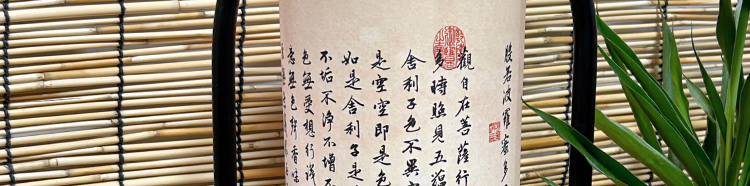 般若波羅蜜多
觀自在菩薩行
多時照見五蘊
舍利子色不異
是空空即是色
如是舍利子是
不垢不淨不增不
色無受想行識
意無色聲香味